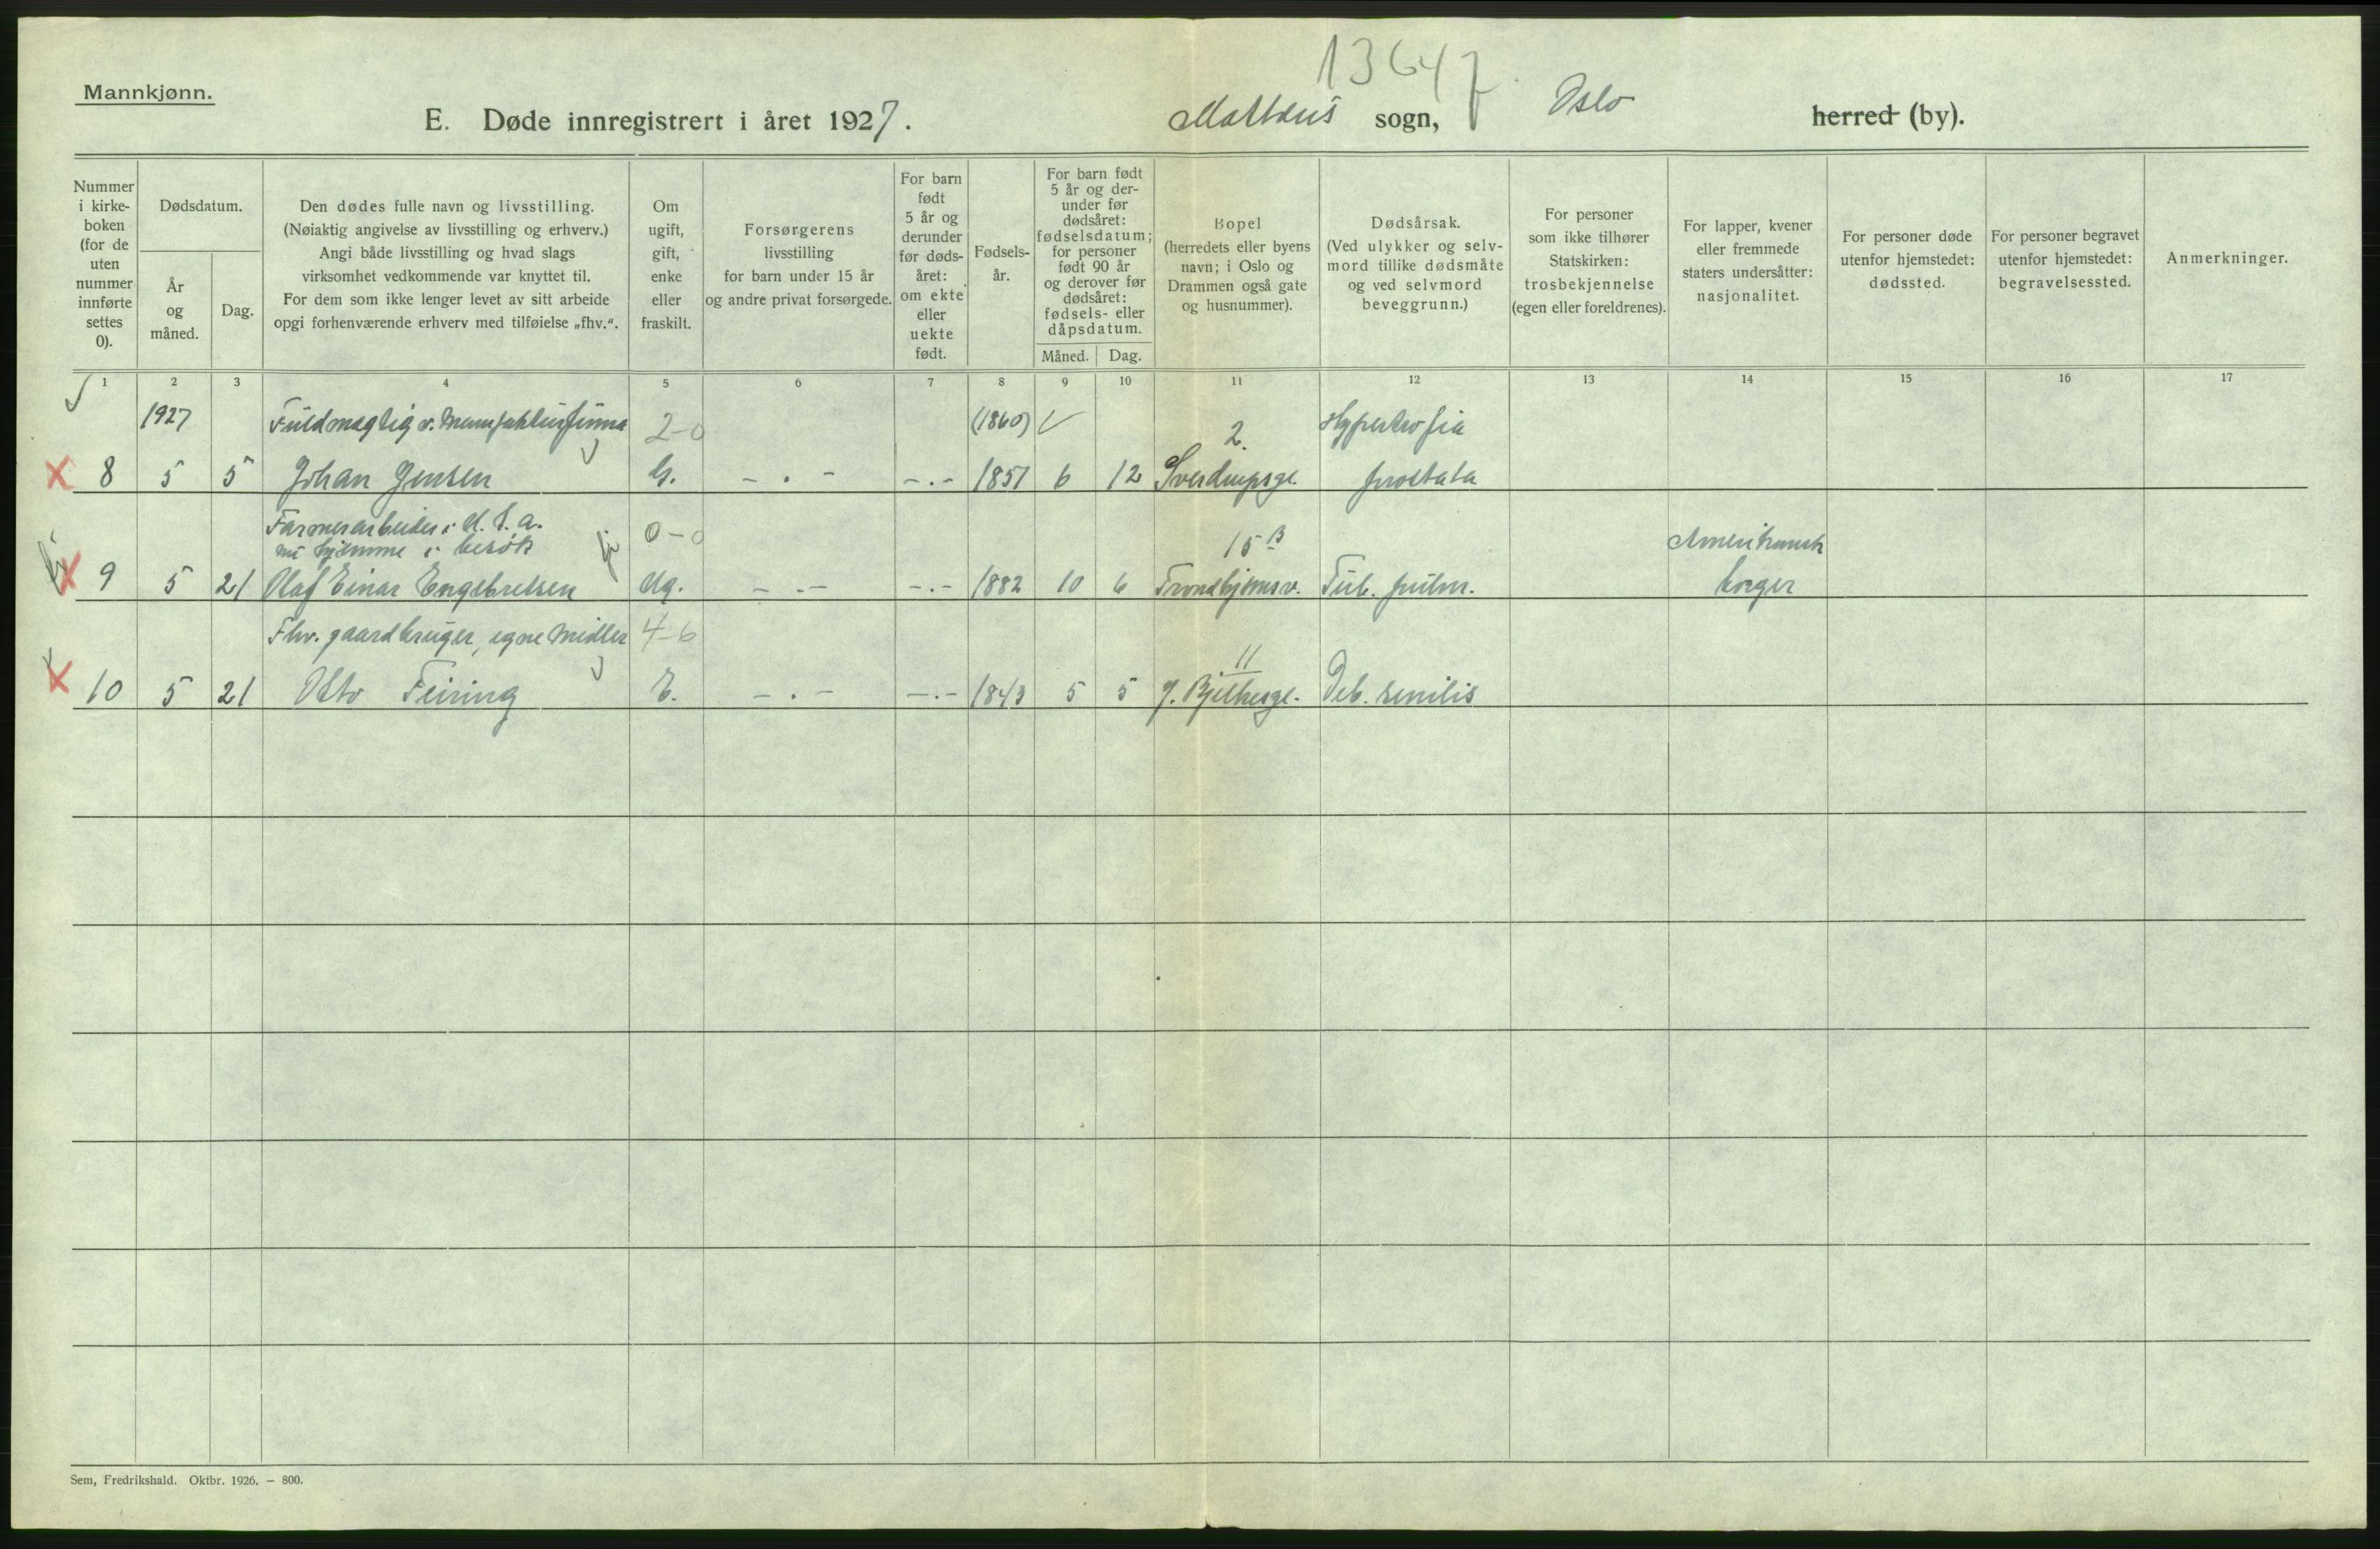 13647
Mannkjønn.
E. Døde innregistrert i året 1927.
Mattæus sogn, Oslo herred (by).
Nummer i kirke-boken (for de uten nummer innførte settes 0).
Dødsdatum.
År og måned.
Dag.
Den dødes fulle navn og livsstilling.
(Nøiaktig angivelse av livsstilling og erhverv.)
Angi både livsstilling og hvad slags
virksomhet vedkommende var knyttet til.
For dem som ikke lenger levet av sitt arbeide
opgi forhenværende erhverv med tilføielse „fhv.“.
Om ugift, gift, enke eller fraskilt.
Forsørgerens
livsstilling
for barn under 15 år
og andre privat forsørgede.
For barn født 5 år og derunder før døds-året: om ekte eller uekte født.
Fødsels-år.
For barn født 5 år og der-under før dødsåret: fødselsdatum; for personer født 90 år og derover før dødsåret: fødsels- eller dåpsdatum.
Måned.
Dag.
Bopel
(herredets eller byens
navn; i Oslo og
Drammen også gate
og husnummer).
Dødsårsak.
(Ved ulykker og selv-
mord tillike dødsmåte
og ved selvmord
beveggrunn.)
For personer
som ikke tilhører
Statskirken:
trosbekjennelse
(egen eller foreldrenes).
For lapper, kvener
eller fremmede
staters undersåtter:
nasjonalitet.
For personer døde
utenfor hjemstedet:
dødssted.
For personer begravet
utenfor hjemstedet:
begravelsessted.
Anmerkninger.
1 2 3 4 5 6 7 8 9 10 11 12 13 14 15 16 17
1927 Fuldmægtig v. Manufakturfirma 2-0 (1860) 2. Hypertrofia
8 5 5 Johan Jensen G. - . - - . - 1851 6 12 Sverdrupsgt. prostata
Farmerarbeider i U.S.A. 0-0 15 B Amerikansk
nu hjemme i besøk
9 5 21 Olaf Einar Engebretsen Ug. - . - - . - 1882 10 6 Trondhjemsv. Tub. pulm. borger
Fhv. gaardbruger, egne midler 4-6 11
10 5 21 Otto Feiring E. - . - - . - 1843 5 5 J. Bjelkesgt. Deb. senilis
Sem, Fredrikshald. Oktbr. 1926. — 800.